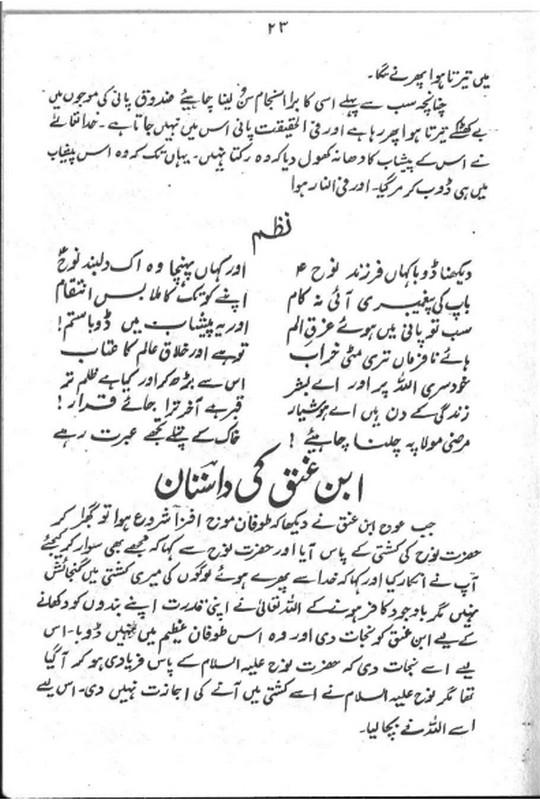 ۲۳
میں تیرتا ہوا پھرنے لگا۔
چنانچہ سب سے پہلے اسی کا برا انجام سن لینا چاہیئے صندوق پانی کی موجوں میں
بے کھٹکے تیرتا ہوا پھر رہا ہے اور فی الحقیقت پانی اس میں نہیں جاتا ہے۔ خدا تعالے
نے اس کے پیشاب کا دھانہ کھول دیا کہ وہ رکتا نہیں۔ یہاں تک کہ وہ اس پیشاب
میں ہی ڈوب کر مر گیا۔ اور فی النار ہوا
نظم
دیکھنا ڈوبا کہاں فرزند نوح ؑ اور کہاں پہنچا وہ اک دلبند نوح ؑ
باپ کی پیغمبری آئی نہ کام اپنے کوتک کا ملا بس انتقام
سب تو پانی میں ہوئے غرق الم اور یہ پیشاب میں ڈوبا ستم!
ہائے نافرماں تری مٹی خراب تو ہے اور خلاق عالم کا عتاب
خودسری اللہ پر اور اے بشر اس سے بڑھ کر اور کیا ہے ظلم تر
زندگی کے دن یہاں اے ہوشیار قبر ہے آخر ترا جائے قرار!
مرضی مولا پہ چلنا چاہیئے! خاک کے پتلے تجھے عبرت رہے
ابن عنق کی داستان
جب عوج ابن عنق نے دیکھا کہ طوفان موج افزا شروع ہوا تو گھبرا کر
حضرت نوح کی کشتی کے پاس آیا اور حضرت نوح سے کہا کہ مجھے بھی سوار کر لیجئے
آپ نے انکار کیا اور کہا کہ خدا سے پھرے ہوئے لوگوں کی میری کشتی میں گنجائش
نہیں مگر باوجود کافر ہونے کے اللہ تعالیٰ نے اپنی قدرت اپنے بندوں کو دکھانے
کے لیے ابن عنق کو نجات دی اور وہ اس طوفان عظیم میں نہیں ڈوبا۔ اس
لیے اسے نجات دی کہ حضرت نوح علیہ السلام کے پاس فریادی ہو کر آ گیا
تھا مگر نوح علیہ السلام نے اسے کشتی میں آنے کی اجازت نہیں دی۔ اس لیے
اسے اللہ نے بچا لیا۔